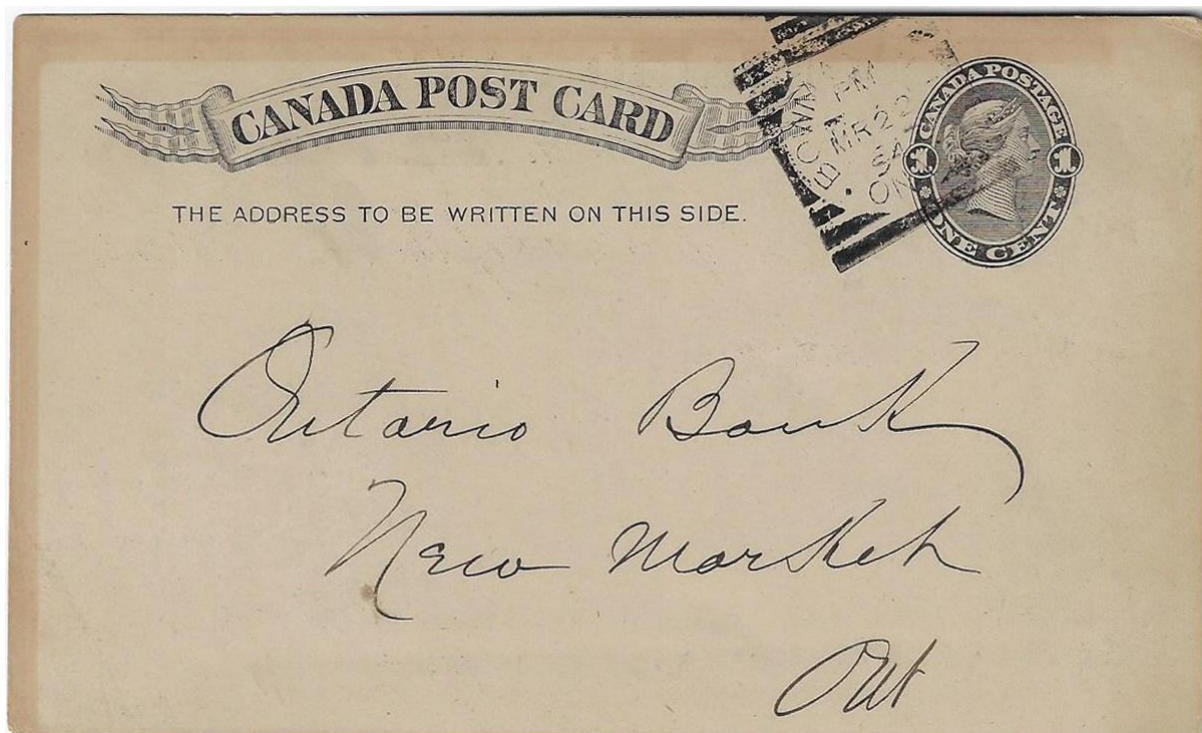 CANADA POST CARD
THE ADDRESS TO BE WRITTEN ON THIS SIDE.
PM
MR 22
ON
CANADA POSTAGE
1 1
ONE CENT
Ontario Bank
New Market
Ont